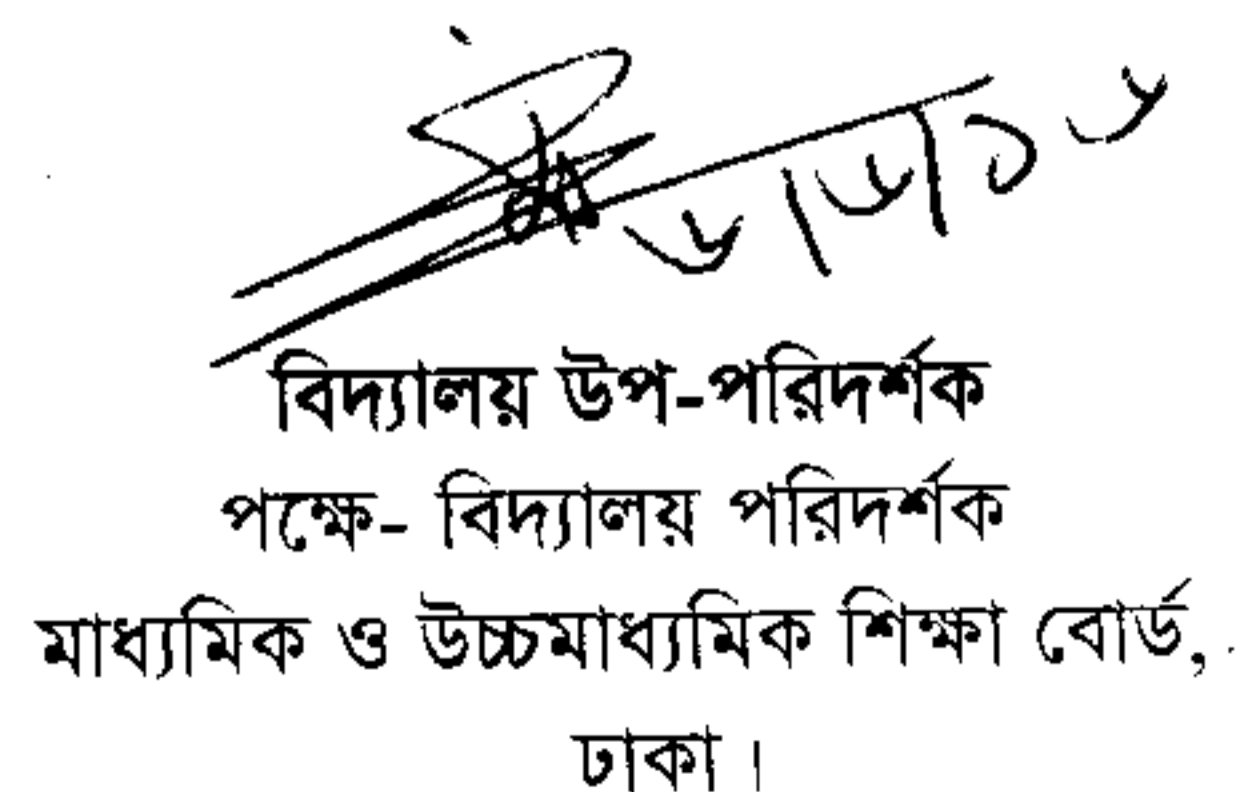 ৬/৬/১৬
বিদ্যালয় উপ-পরিদর্শক
পক্ষে- বিদ্যালয় পরিদর্শক
মাধ্যমিক ও উচ্চমাধ্যমিক শিক্ষা বোর্ড,
ঢাকা।